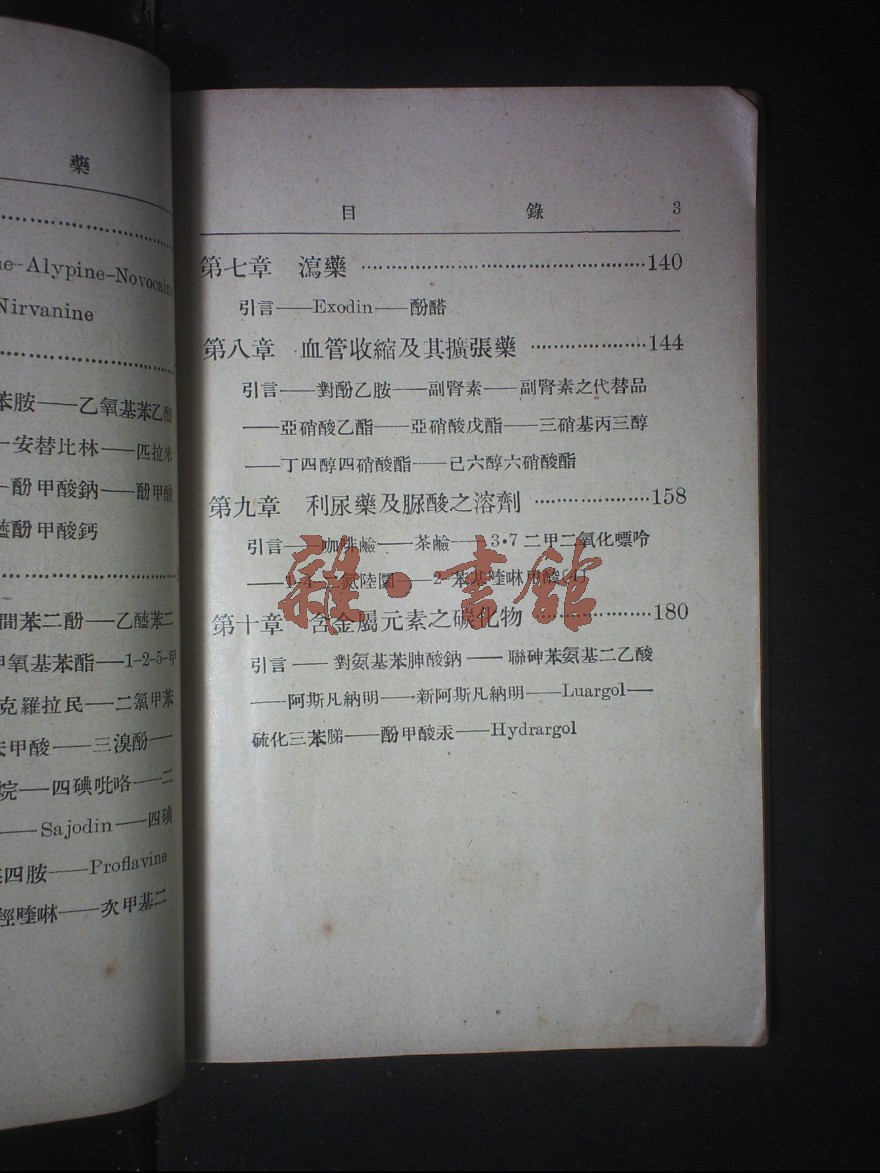 藥
ne-Alypine-Novocaine
Nirvanine
苯胺——乙氧基苯乙醯
—安替比林——匹拉米
—酚甲酸鈉——酚甲酸
醯酚甲酸鈣
間苯二酚——乙醯苯二
甲氧基苯酯——1-2-5-甲
克羅拉民——二氯甲苯
甲酸——三溴酚—
烷——四碘吡咯——二
——Sajodin——四碘
四胺——Proflavine
喹啉——次甲基二
目 錄 3
第七章 瀉藥 ………………………………140
引言——Exodin——酚醛
第八章 血管收縮及其擴張藥 ……………144
引言——對酚乙胺——副腎素——副腎素之代替品
——亞硝酸乙酯——亞硝酸戊酯——三硝基丙三醇
——丁四醇四硝酸酯——己六醇六硝酸酯
第九章 利尿藥及脲酸之溶劑 ……………158
引言——咖啡鹼——茶鹼——3·7 二甲二氧化嘌呤
——1-4-二氮陸圜——2-苯基喹啉甲酸〔4〕
第十章 含金屬元素之碳化物 ……………180
引言——對氨基苯胂酸鈉——聯砷苯氨基二乙酸
——阿斯凡納明——新阿斯凡納明——Luargol—
硫化三苯䏲——酚甲酸汞——Hydrargol
雜·書館